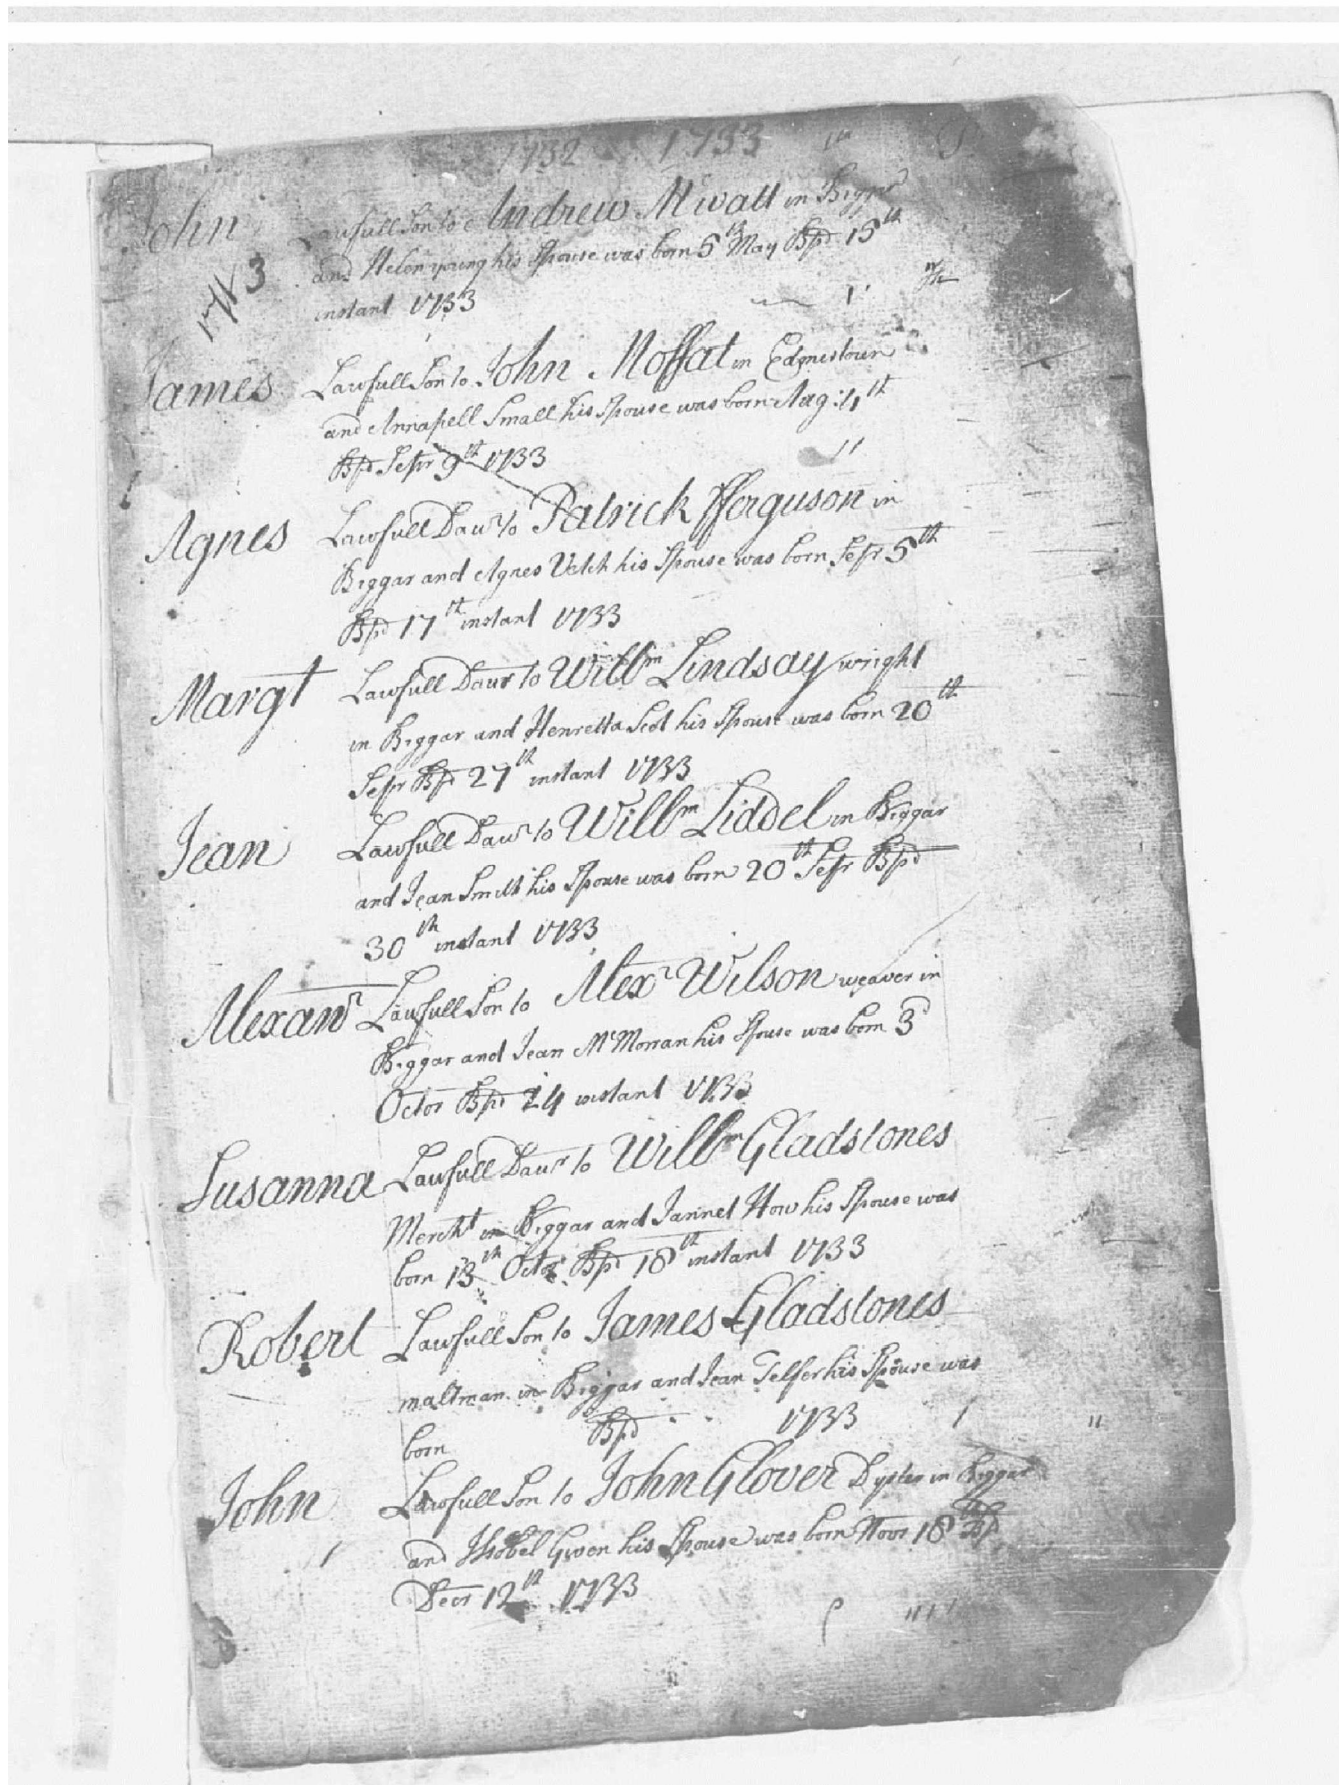 1732 1733
John Lawfull Son to Andrew Mcwatt in Biggar
and Helen young his Spouse was born 5th May Bpd 15th
instant 1733
James Lawfull Son to John Moffat in Edmistoun
and Annapell Small his Spouse was born Aug: 4th
Bpd Sepr 9th 1733
Agnes Lawfull Daur to Patrick fferguson in
Biggar and Agnes Veitch his Spouse was born Sepr 5th
Bpd 17th instant 1733
Margt Lawfull Daur to Willm Lindsay wright
in Biggar and Henretta Scot his Spouse was born 20th
Sepr Bpd 27th instant 1733
Jean Lawfull Daur to Willm Liddel in Biggar
and Jean Smith his Spouse was born 20th Sepr Bpd
30th instant 1733
Alexanr Lawfull Son to Alexr Wilson weaver in
Biggar and Jean McMorran his Spouse was born 3d
Octor Bpd 24 instant 1733
Susanna Lawfull Daur to Willm Gladstones
Mercht in Biggar and Jannet How his Spouse was
born 13th Octor Bpd 18th instant 1733
Robert Lawfull Son to James Gladstones
maltman in Biggar and Jean Telfer his Spouse was
born Bpd 1733
John Lawfull Son to John Glover Dyster in Biggar
and Isobel Gwen his Spouse was born Novr 18th Bpd
Decr 12th 1733